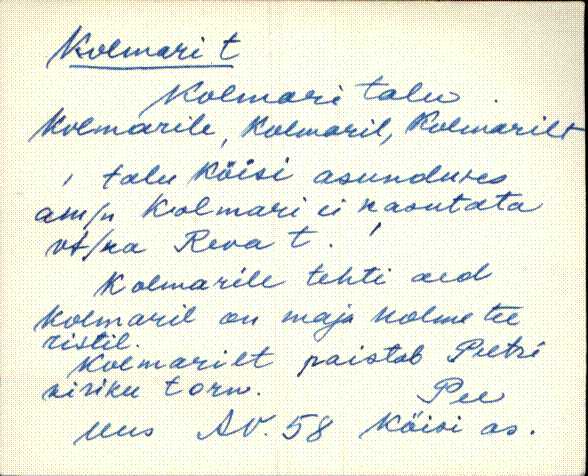 Kolmari t
Kolmari talu.
Kolmarile, Kolmaril, Kolmarilt
, talu Köisi asunduses
am/n Kolmari ei kasutata
vt/ka Reva t. !
Kolmarile tehti aed
Kolmaril on maja kolme tee
ristil.
Kolmarilt paistab Peetri
kiriku torn.
Pee
Uus AV. 58 Köisi as.